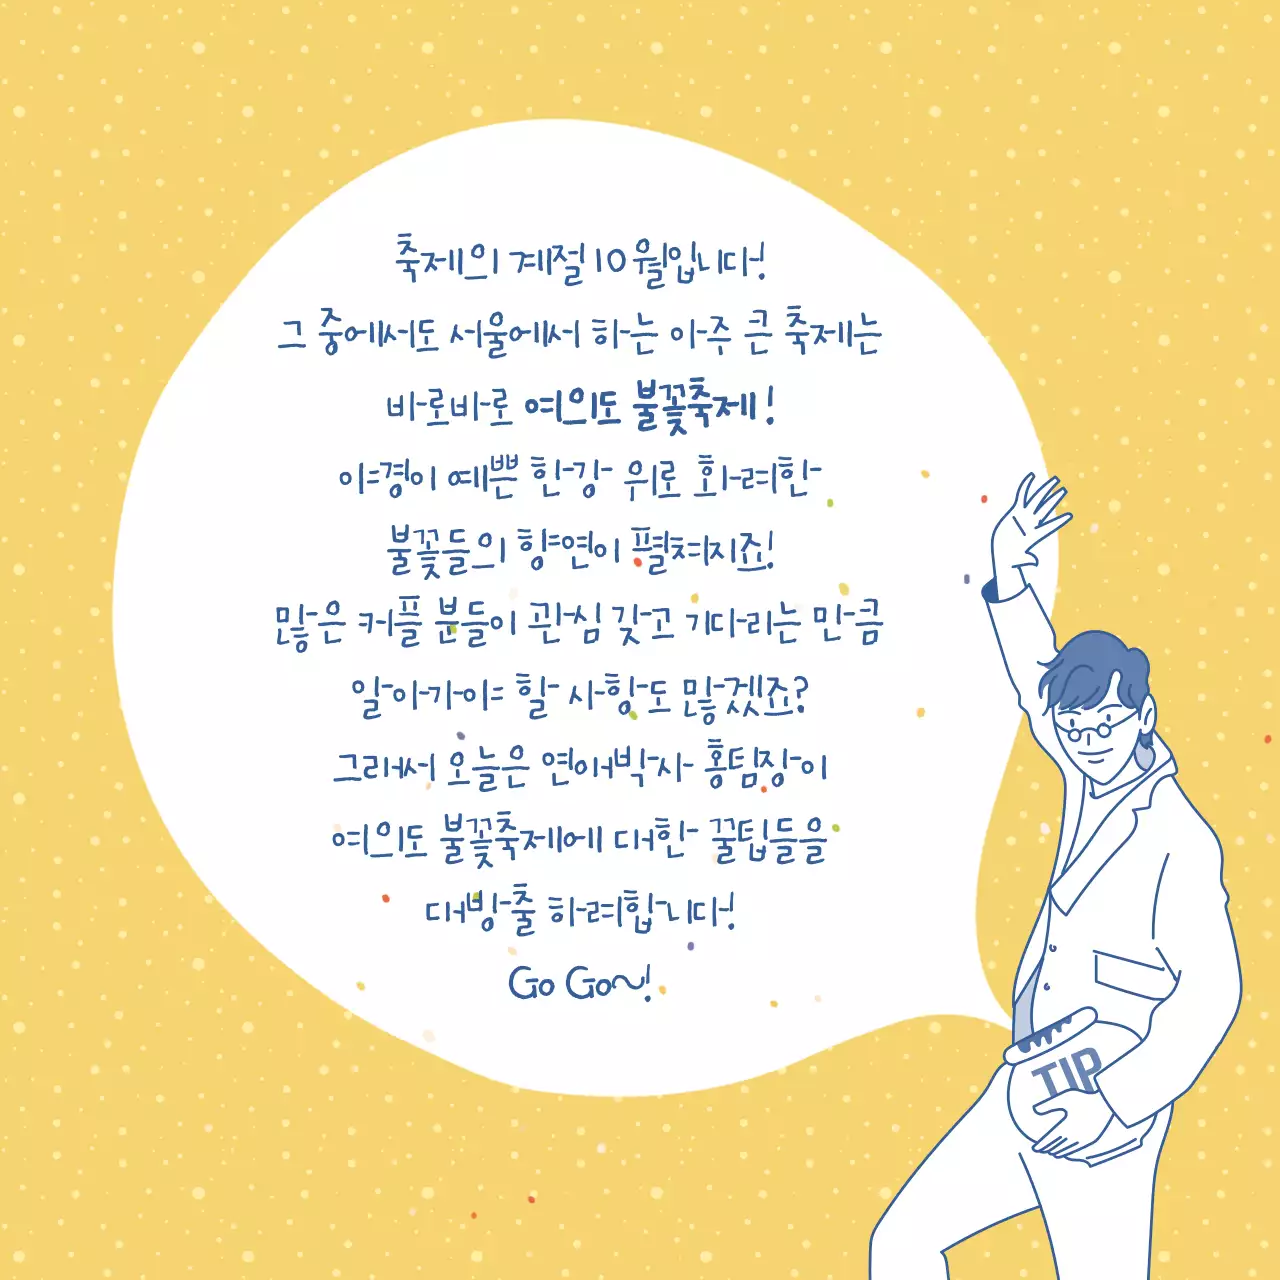 축제의 계절 10월입니다!
그 중에서도 서울에서 하는 아주 큰 축제는
바로바로 여의도 불꽃축제!
야경이 예쁜 한강 위로 화려한
불꽃들의 향연이 펼쳐지죠!
많은 커플 분들이 관심 갖고 기다리는 만큼
알아가야 할 사항도 많겠죠?
그래서 오늘은 연애박사 홍팀장이
여의도 불꽃축제에 대한 꿀팁들을
대방출 하려합니다!
Go Go~!
TIP